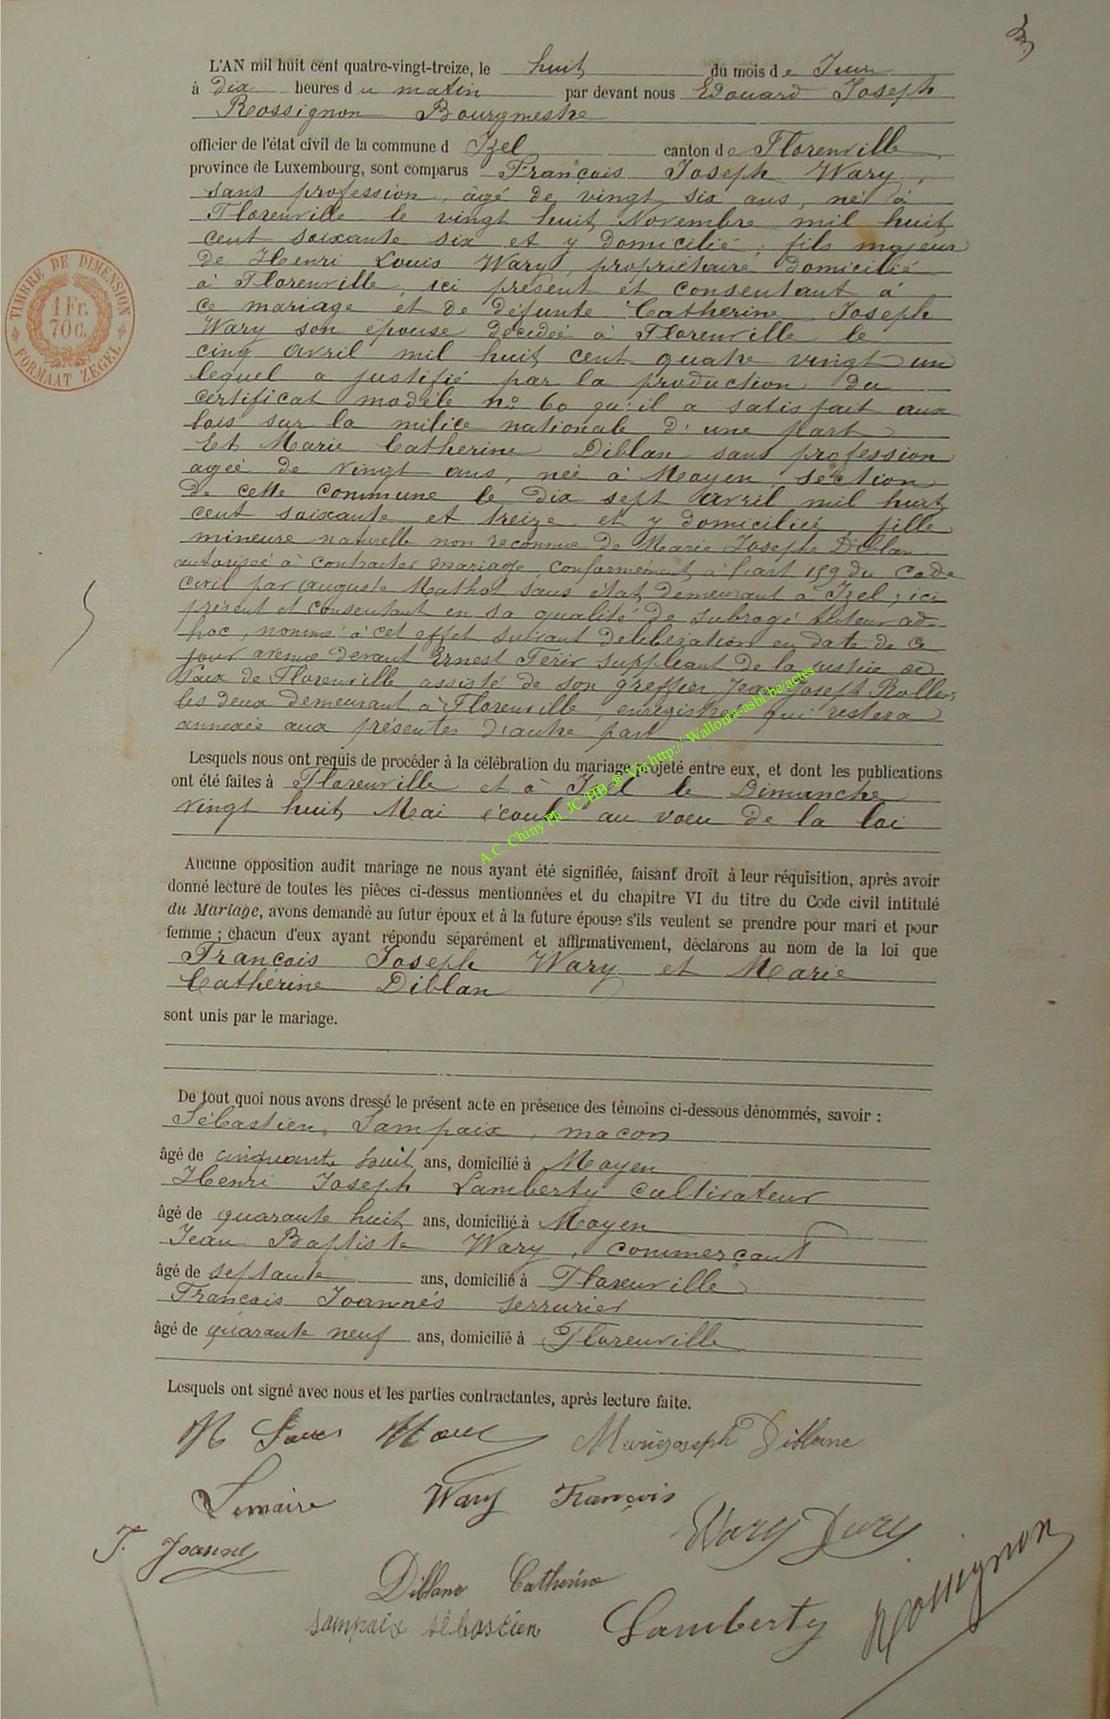 L'AN mil huit cent quatre-vingt-treize, le huit du mois de Juin
à dix heures du matin par devant nous Edouard Joseph
Rossignon Bourgmestre
officier de l'état civil de la commune d Izel canton de Florenville
province de Luxembourg, sont comparus François Joseph Wary,
sans profession, âgé de vingt six ans, né à
Florenville le vingt huit Novembre mil huit
cent soixante six et y domicilié, fils majeur
de Henri Louis Wary, propriétaire domicilié
à Florenville, ici présent et consentant à
ce mariage et de défunte Catherine Joseph
Wary son épouse décédée à Florenville le
cinq avril mil huit cent quatre vingt un
lequel a justifié par la production du
certificat modèle no 60 qu'il a satisfait aux
lois sur la milice nationale d'une part
Et Marie Catherine Diblan sans profession
agée de vingt ans, née à Moyen, section
de cette commune le dix sept avril mil huit
cent soixante et treize et y domiciliée, fille
mineure naturelle non reconnue de Marie Joseph Diblan
autorisée à contracter mariage, conformément à l'art 159 du Code
civil par Auguste Mathot sans état demeurant à Izel, ici
présent et consentant en sa qualité de subrogé tuteur ad-
hoc, nommé à cet effet suivant délibération en date de ce
jour avenue devant Ernest Férir suppléant de la justice de
Paix de Florenville assisté de son greffier Jean Joseph
les deux demeurant à Florenville, enregistrée qui restera
annexée aux présentes d'autre part
Lesquels nous ont requis de procéder à la célébration du mariage projeté entre eux, et dont les publications
ont été faites à Florenville et à Izel le Dimanche
vingt huit Mai écoulé au voeu de la loi
A.C. Chiny Ph. JC/HB ® Via http:// Wallonia-asbl be/actes
Aucune opposition audit mariage ne nous ayant été signifiée, faisant droit à leur réquisition, après avoir
donné lecture de toutes les pièces ci-dessus mentionnées et du chapitre VI du titre du Code civil intitulé
du Mariage, avons demandé au futur époux et à la future épouse s'ils veulent se prendre pour mari et pour
femme ; chacun d'eux ayant répondu séparément et affirmativement, déclarons au nom de la loi que
François Joseph Wary et Marie
Cathérine Diblan
sont unis par le mariage.
De tout quoi nous avons dressé le présent acte en présence des témoins ci-dessous dénommés, savoir :
Sébastien Sampaix, maçon
âgé de cinquante huit ans, domicilié à Moyen
Henri Joseph Lamberty cultivateur
âgé de quarante huit ans, domicilié à Moyen
Jean Baptiste Wary, commerçant
âgé de septante ans, domicilié à Florenville
François Joannés serrurier
âgé de quarante neuf ans, domicilié à Florenville
Lesquels ont signé avec nous et les parties contractantes, après lecture faite.
Mariejoseph Diblanc
Lemaire Wary François
Wary
J. Joannes
Diblanc Catherine
Sampaix sébastien Lamberty Rossignon
TIMBRE DE DIMENSION
1 Fr.
70 C.
FORMAAT ZEGEL